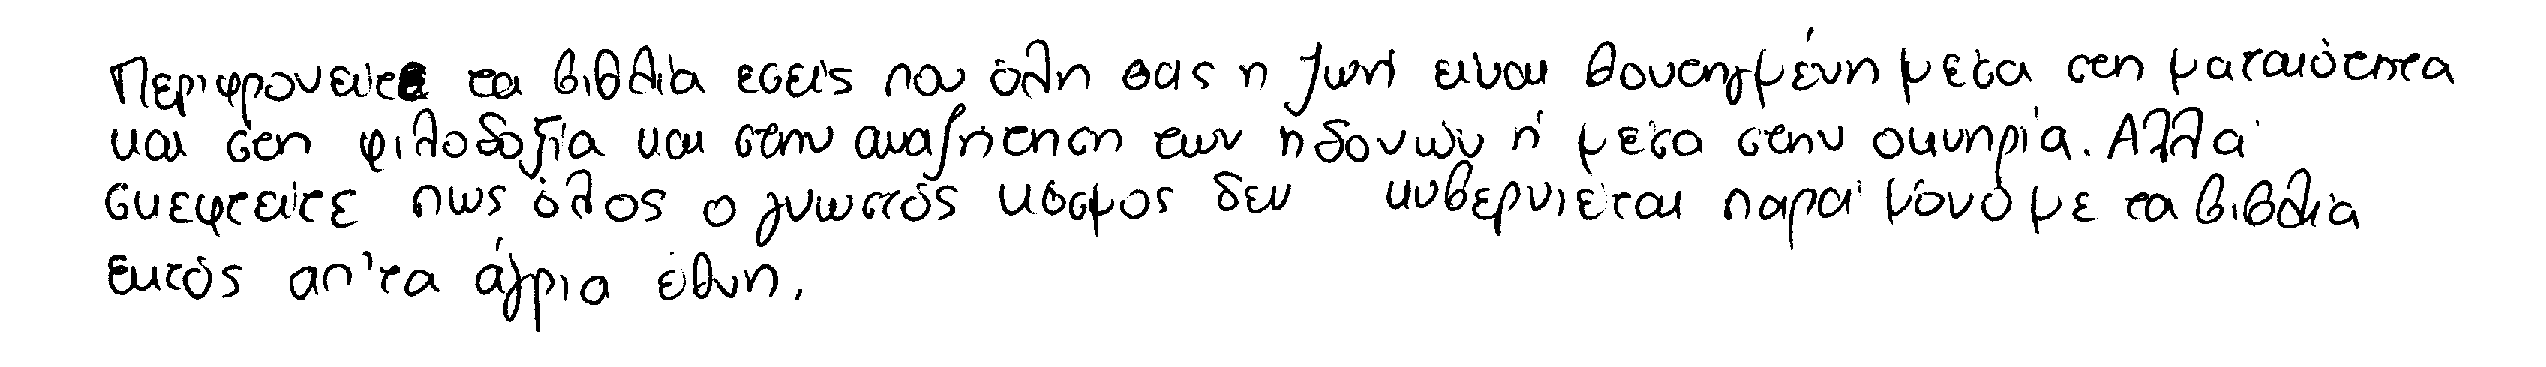 Περιφρονείτε τα βιβλία εσείς που όλη σας η ζωή είναι βουτηγμένη μέσα στη ματαιότητα
και στη φιλοδοξία και στην αναζήτηση των ηδονών ή μέσα στην οκνηρία. Αλλά
σκεφτείτε πως όλος ο γνωστός κόσμος δεν κυβερνιέται παρά μόνο με τα βιβλία
εκτός απ'τα άγρια έθνη.